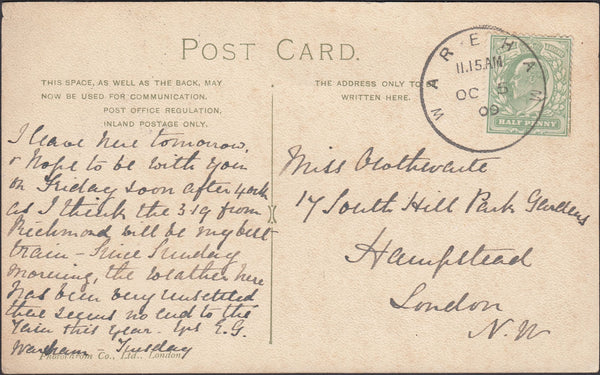 POST CARD.
THIS SPACE, AS WELL AS THE BACK, MAY
NOW BE USED FOR COMMUNICATION.
POST OFFICE REGULATION.
INLAND POSTAGE ONLY.
THE ADDRESS ONLY TO
WRITTEN HERE.
WAREHAM
11.15AM
OC 5
09
HALF PENNY
I leave here tomorrow,
& hope to be with you
on Friday soon after
as I think the 3.19 from
Richmond will be my best
train - Since Sunday
morning, the weather here
has been very unsettled
there seems no end to the
rain this year. E.G.
Wareham - Tuesday
Photochrom Co., Ltd., London.
Miss
17 South Hill Park Gardens
Hampstead
London
N.W